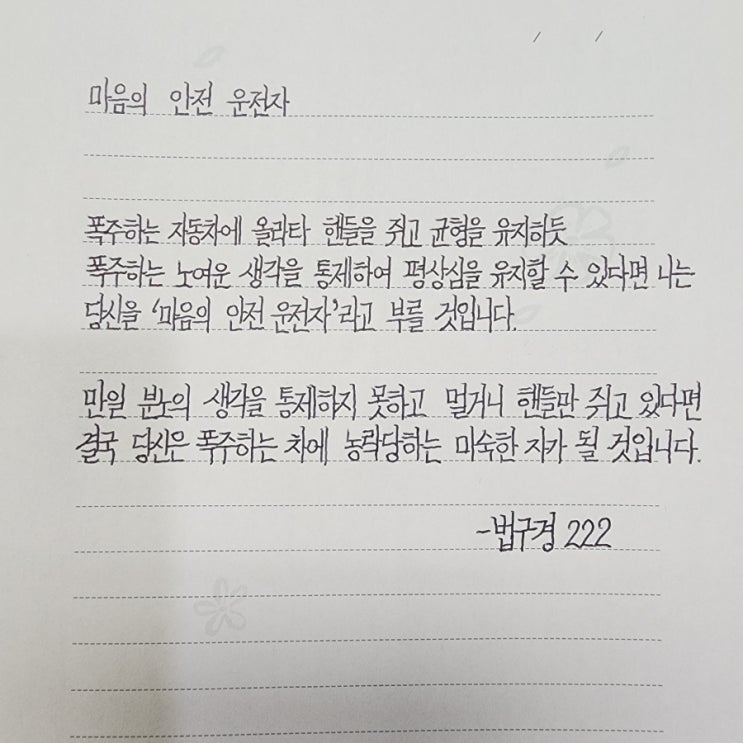 / /
마음의 안전 운전자
폭주하는 자동차에 올라타 핸들을 쥐고 균형을 유지하듯
폭주하는 노여운 생각을 통제하여 평상심을 유지할 수 있다면 나는
당신을 '마음의 안전 운전자'라고 부를 것입니다.
만일 분노의 생각을 통제하지 못하고 멀거니 핸들만 쥐고 있다면
결국 당신은 폭주하는 차에 농락당하는 미숙한 자가 될 것입니다.
-법구경 222